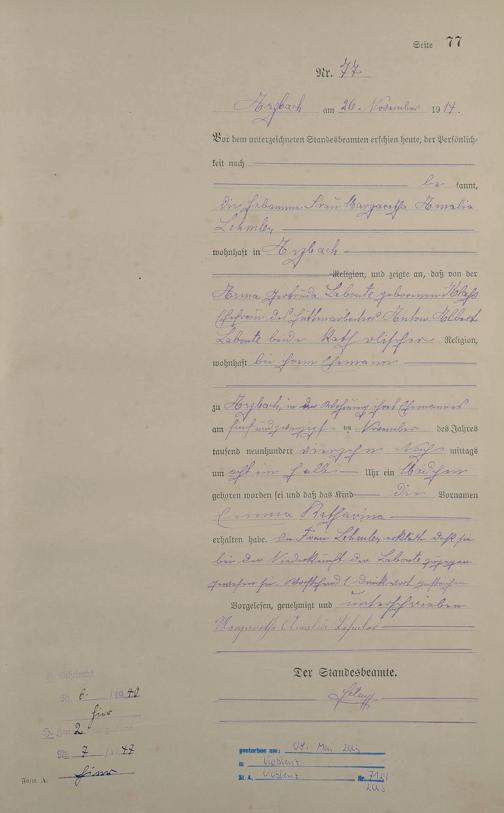 Seite 77
Nr. 77
Arzbach am 26. November 1914.
Vor dem unterzeichneten Standesbeamten erschien heute, der Persönlich-
keit nach
be kannt,
die Hebamme Frau Margaretha Amalia
Lehmler
wohnhaft in Arzbach
Religion, und zeigte an, daß von der
Anna Gertruda Labonte geborenen Klaß
Ehefrau des Hüttenarbeiters Anton Albert
Labonte beide katholischer Religion,
wohnhaft bei ihrem Ehemann
zu Arzbach, in der Wohnung ihres Ehemannes
am fünfundzwanzigsten November des Jahres
tausend neunhundert vierzehn Nach mittags
um acht ein halb Uhr ein Mädchen
geboren worden sei und daß das Kind die Vornamen
Emma Katharina
erhalten habe. Die Frau Lehmler erklärt daß sie
bei der Niederkunft der Labonte zugegen
gewesen sei. Vorstehend 1 Druckwort gestrichen
Vorgelesen, genehmigt und unterschrieben
Margaretha Amalia Lehmler
Der Standesbeamte.
Nr. 6 / 1940
hier
2
Nr. 7 / 47
hier
Form A.
gestorben am: 04. Mai 2003
in Koblenz
St. A. Koblenz Nr.
2003